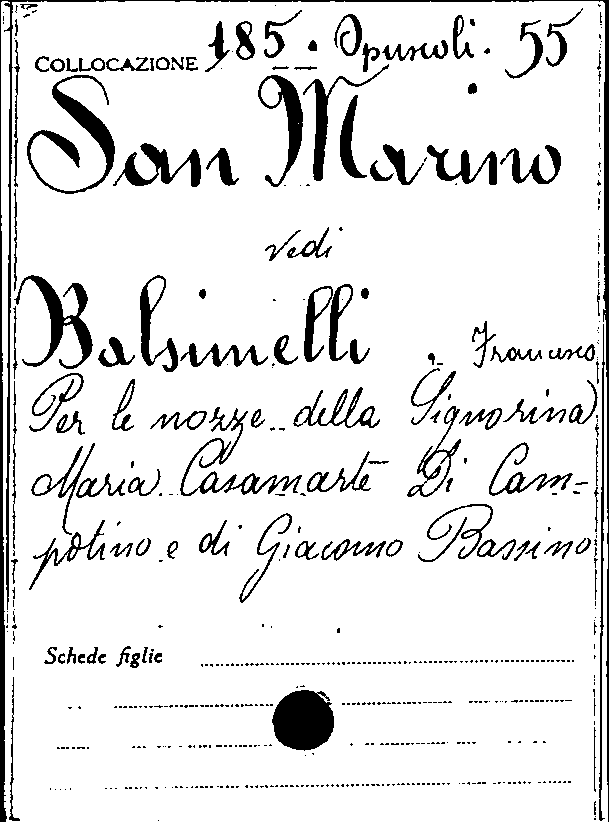 COLLOCAZIONE 185. Opuscoli. 55
San Marino
vedi
Balsimelli . Francesco
Per le nozze della Signorina
Maria Casamarte Di Cam-
potino e di Giacomo Bassino
Schede figlie